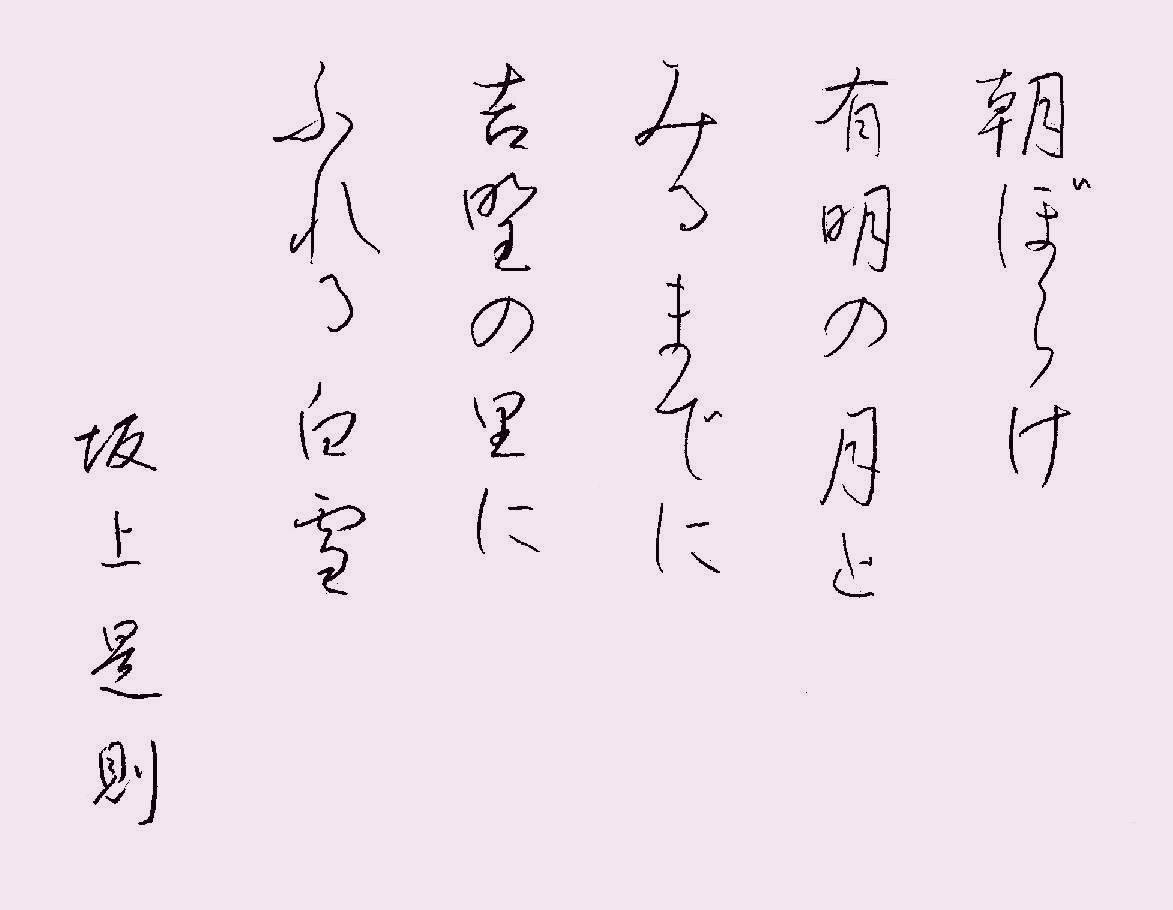 朝ぼらけ
有明の月と
みるまでに
吉野の里に
ふれる白雪
坂上是則